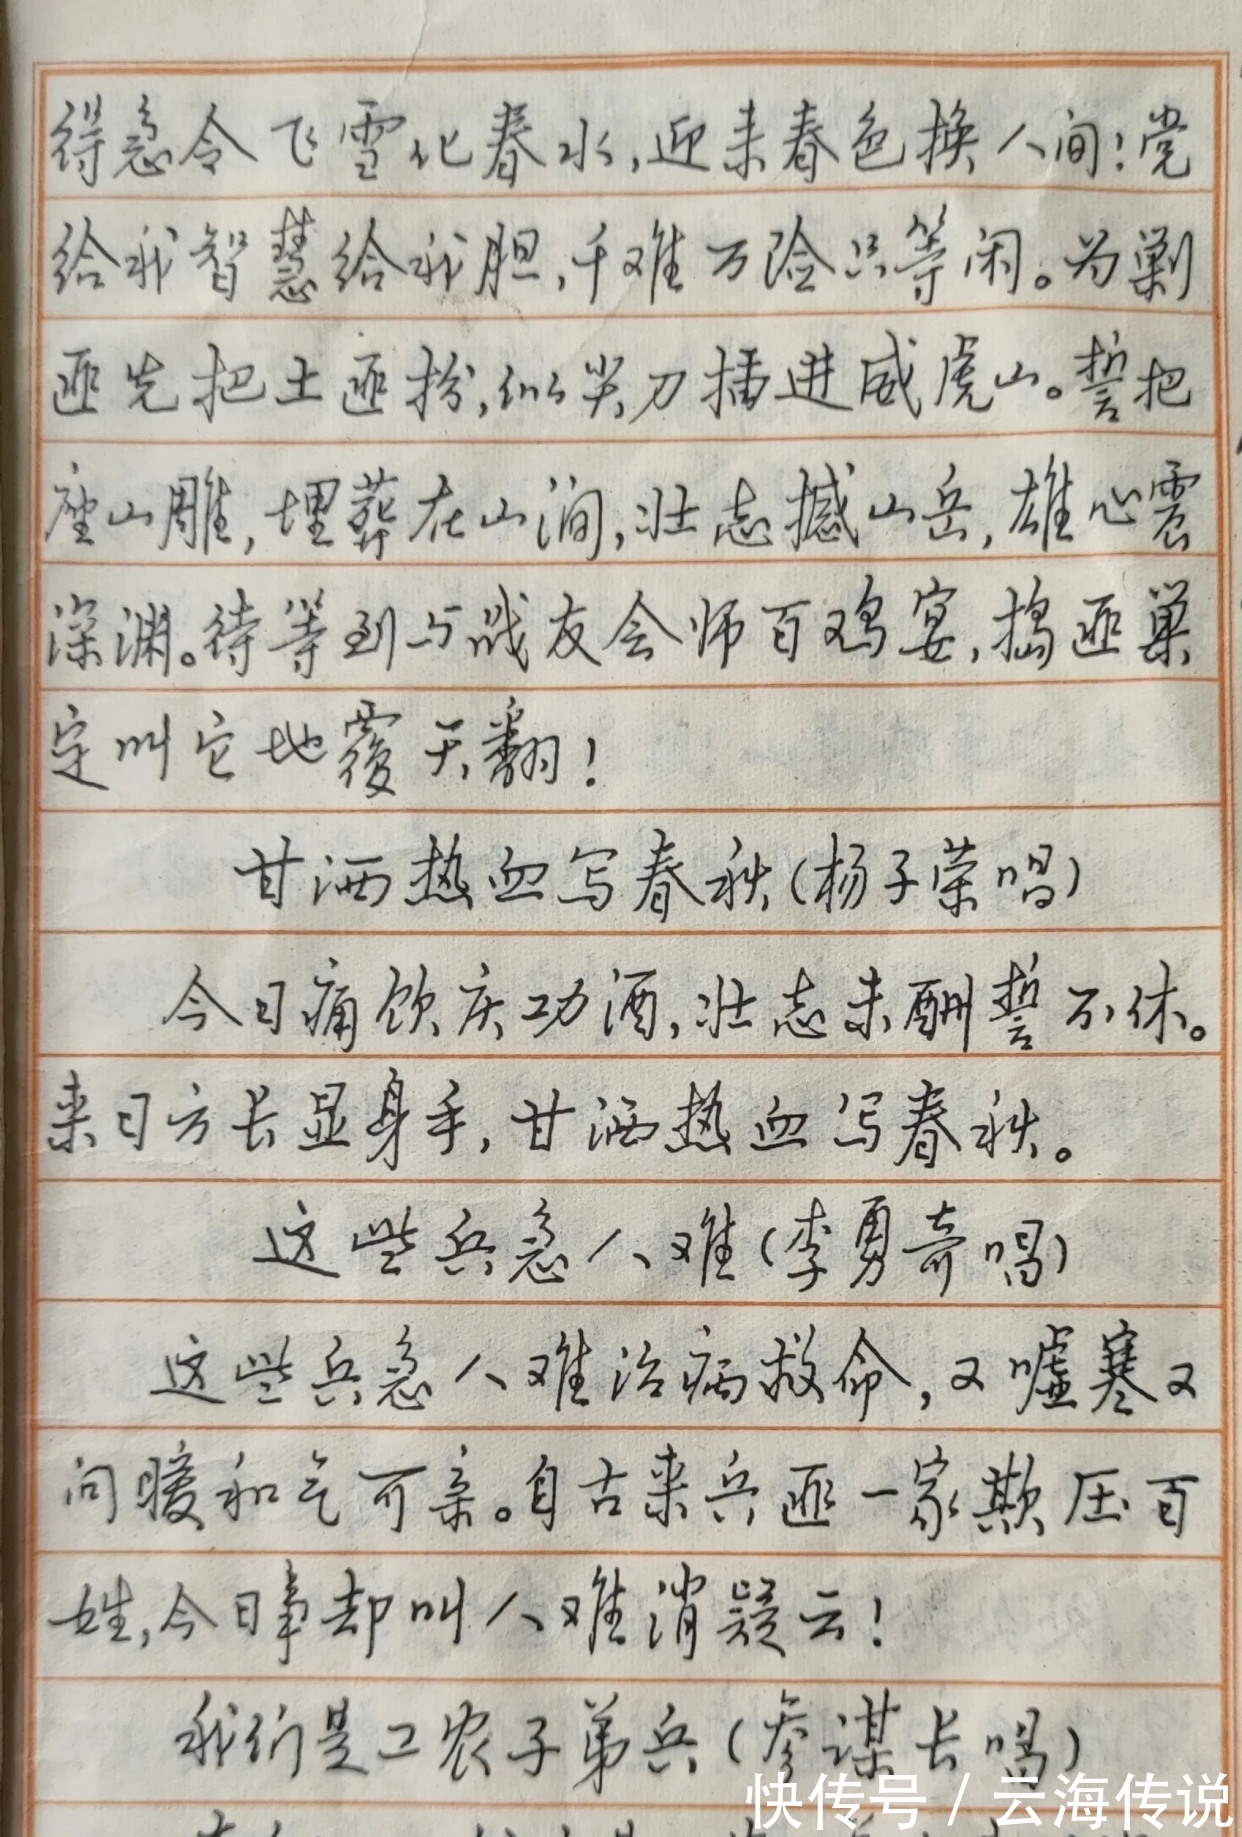 得急令飞雪化春水,迎来春色换人间!党
给我智慧给我胆,千难万险只等闲。为剿
匪先把土匪扮,似尖刀插进威虎山。誓把
座山雕,埋葬在山涧,壮志撼山岳,雄心震
深渊。待等到与战友会师百鸡宴,捣匪巢
定叫它地覆天翻!
甘洒热血写春秋(杨子荣唱)
今日痛饮庆功酒,壮志未酬誓不休。
来日方长显身手,甘洒热血写春秋。
这些兵急人难(李勇奇唱)
这些兵急人难治病救命,又嘘寒又
问暖和气可亲。自古来兵匪一家欺压百
姓,今日事却叫人难消疑云!
我们是工农子弟兵(参谋长唱)
快传号 / 云海传说